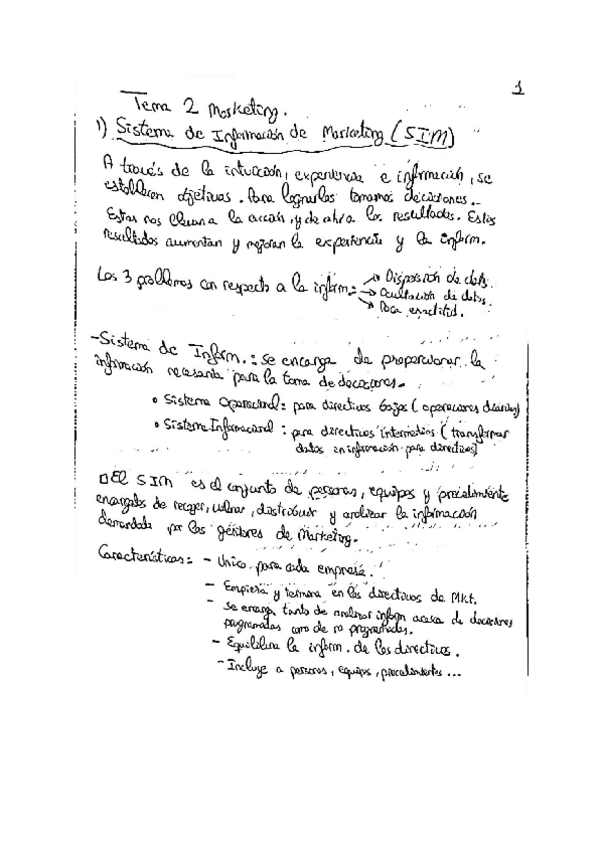 1
Tema 2 Marketing.
1) Sistema de Información de Marketing (SIM)
A través de la intuición, experiencia e información, se
establecen objetivos. Para lograrlos tomamos decisiones.
Estas nos llevan a la acción, y de ahí a los resultados. Estos
resultados aumentan y mejoran la experiencia y la inform.
Los 3 problemas con respecto a la inform.: → Disposición de dats.
→ Ocultación de datos.
→ Poca exactitud.
-Sistema de Inform.: se encarga de proporcionar la
información necesaria para la toma de decisiones.
• Sistema Operacional: para directivos bajos (operaciones diarias)
• Sistema Informacional: para directivos intermedios (transformar
datos en información para directivos)
□ El SIM es el conjunto de personas, equipos y procedimiento
encargados de recoger, valorar, distribuir y analizar la información
demandada por los gestores de Marketing.
Características: - Único para cada empresa.
- Empieza y termina en los directivos de Mkt.
- Se encarga tanto de analizar inform acerca de decisiones
programadas como de no programadas.
- Equilibra la inform. de los directivos.
- Incluye a personas, equipos, procedimientos...